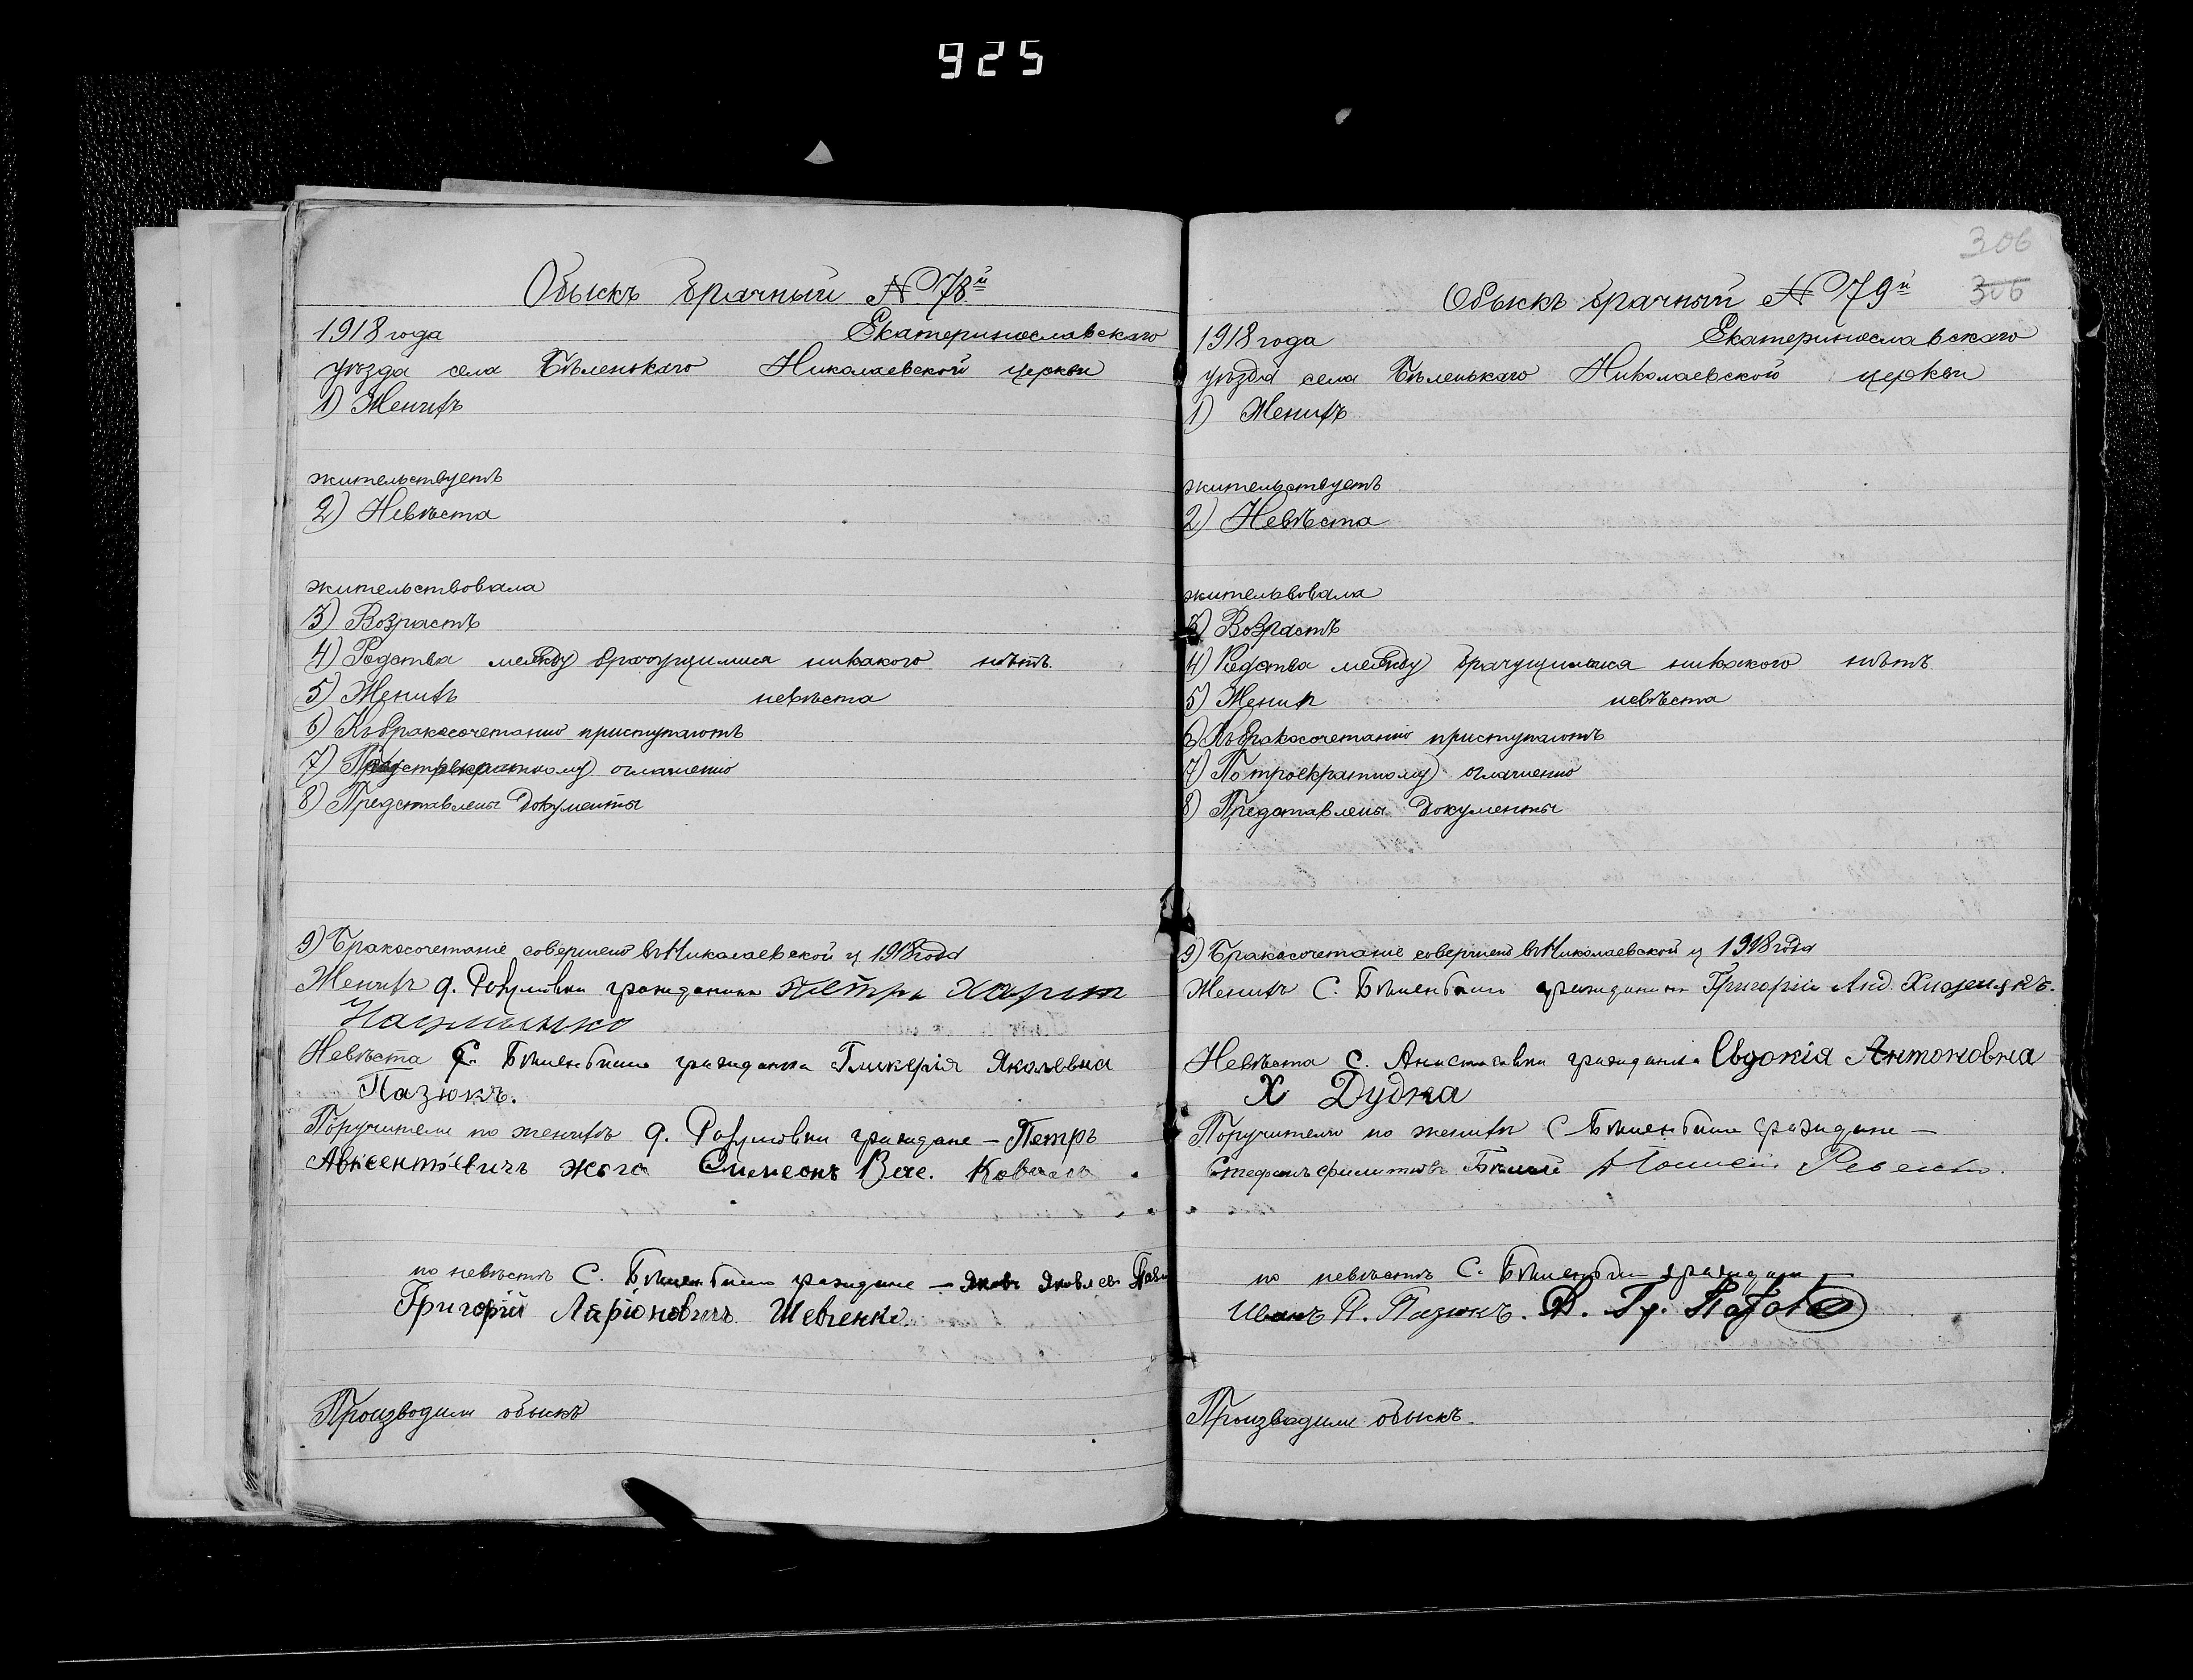 925
Обыскъ брачный № 78й
1918 года Екатеринославскаго
уѣзда села Бѣленькаго Николаевской церкви
1) Женихъ
жительствуетъ
2) Невѣста
жительствовала
3) Возрастъ
4) Родства между брачущимися никакого нѣтъ.
5) Женихъ невѣста
6) Къ бракосочетанію приступаютъ
7) оглашенію
8) Представлены документы
9) Бракосочетаніе совершено въ Николаевской ц 1918 года
Женихъ д. гражданинъ Петръ Харит
Невѣста с. Бѣленькаго гражданка Гликерія Яковлевна
Пазюкъ.
Поручители по женихѣ д. граждане — Петръ
Авксентіевичъ Жога Симеонъ Вас. Коваль
по невѣстѣ С. Бѣленькаго граждане — Яковъ Яковлев
Григорій Ларіоновичъ Шевченко.
Производили обыскъ
306
306
Обыскъ брачный № 79й
1918 года Екатеринославскаго
уѣзда села Бѣленькаго Николаевской церкви
1) Женихъ
жительствуетъ
2) Невѣста
жительвовала
3) Возрастъ
4) Родства между брачущимися никакого нѣтъ
5) Жених невѣста
6) Къ бракосочетанію приступаютъ
7) По троекратному оглашенію
8) Представлены документы
9) Бракосочетаніе совершено въ Николаевской ц 1918 года
Женихъ С. Бѣленькаго гражданинъ Григорій Анд.
Невѣста с. гражданка Евдокія Антоновна
X Дудка
Поручители по женихѣ С Бѣленькаго граждане —
Стефанъ
по невѣстѣ С. Бѣленькаго граждане —
Иванъ Я. Пазюкъ. Гр.
Производили обыскъ.